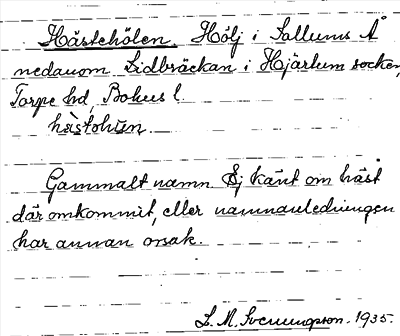 Hästehölen. Hölj i Sollums Å
nedanom Lidbräckan i Hjärtum socken,
Torpe hd, Bohus l.
Gammalt namn. Ej känt om häst
där omkommit, eller namnanledningen
har annan orsak.
L. M. Svenungson. 1935.